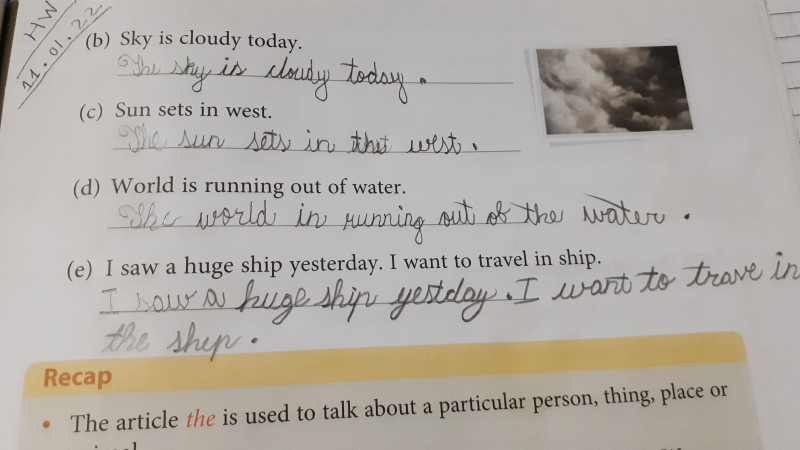 HW
11.01.22
(b) Sky is cloudy today.
The sky is cloudy today.
(c) Sun sets in west.
The sun sets in the west.
(d) World is running out of water.
The world in running out of the water.
(e) I saw a huge ship yesterday. I want to travel in ship.
I saw a huge ship yestday. I want to trave in
the shep.
Recap
• The article the is used to talk about a particular person, thing, place or